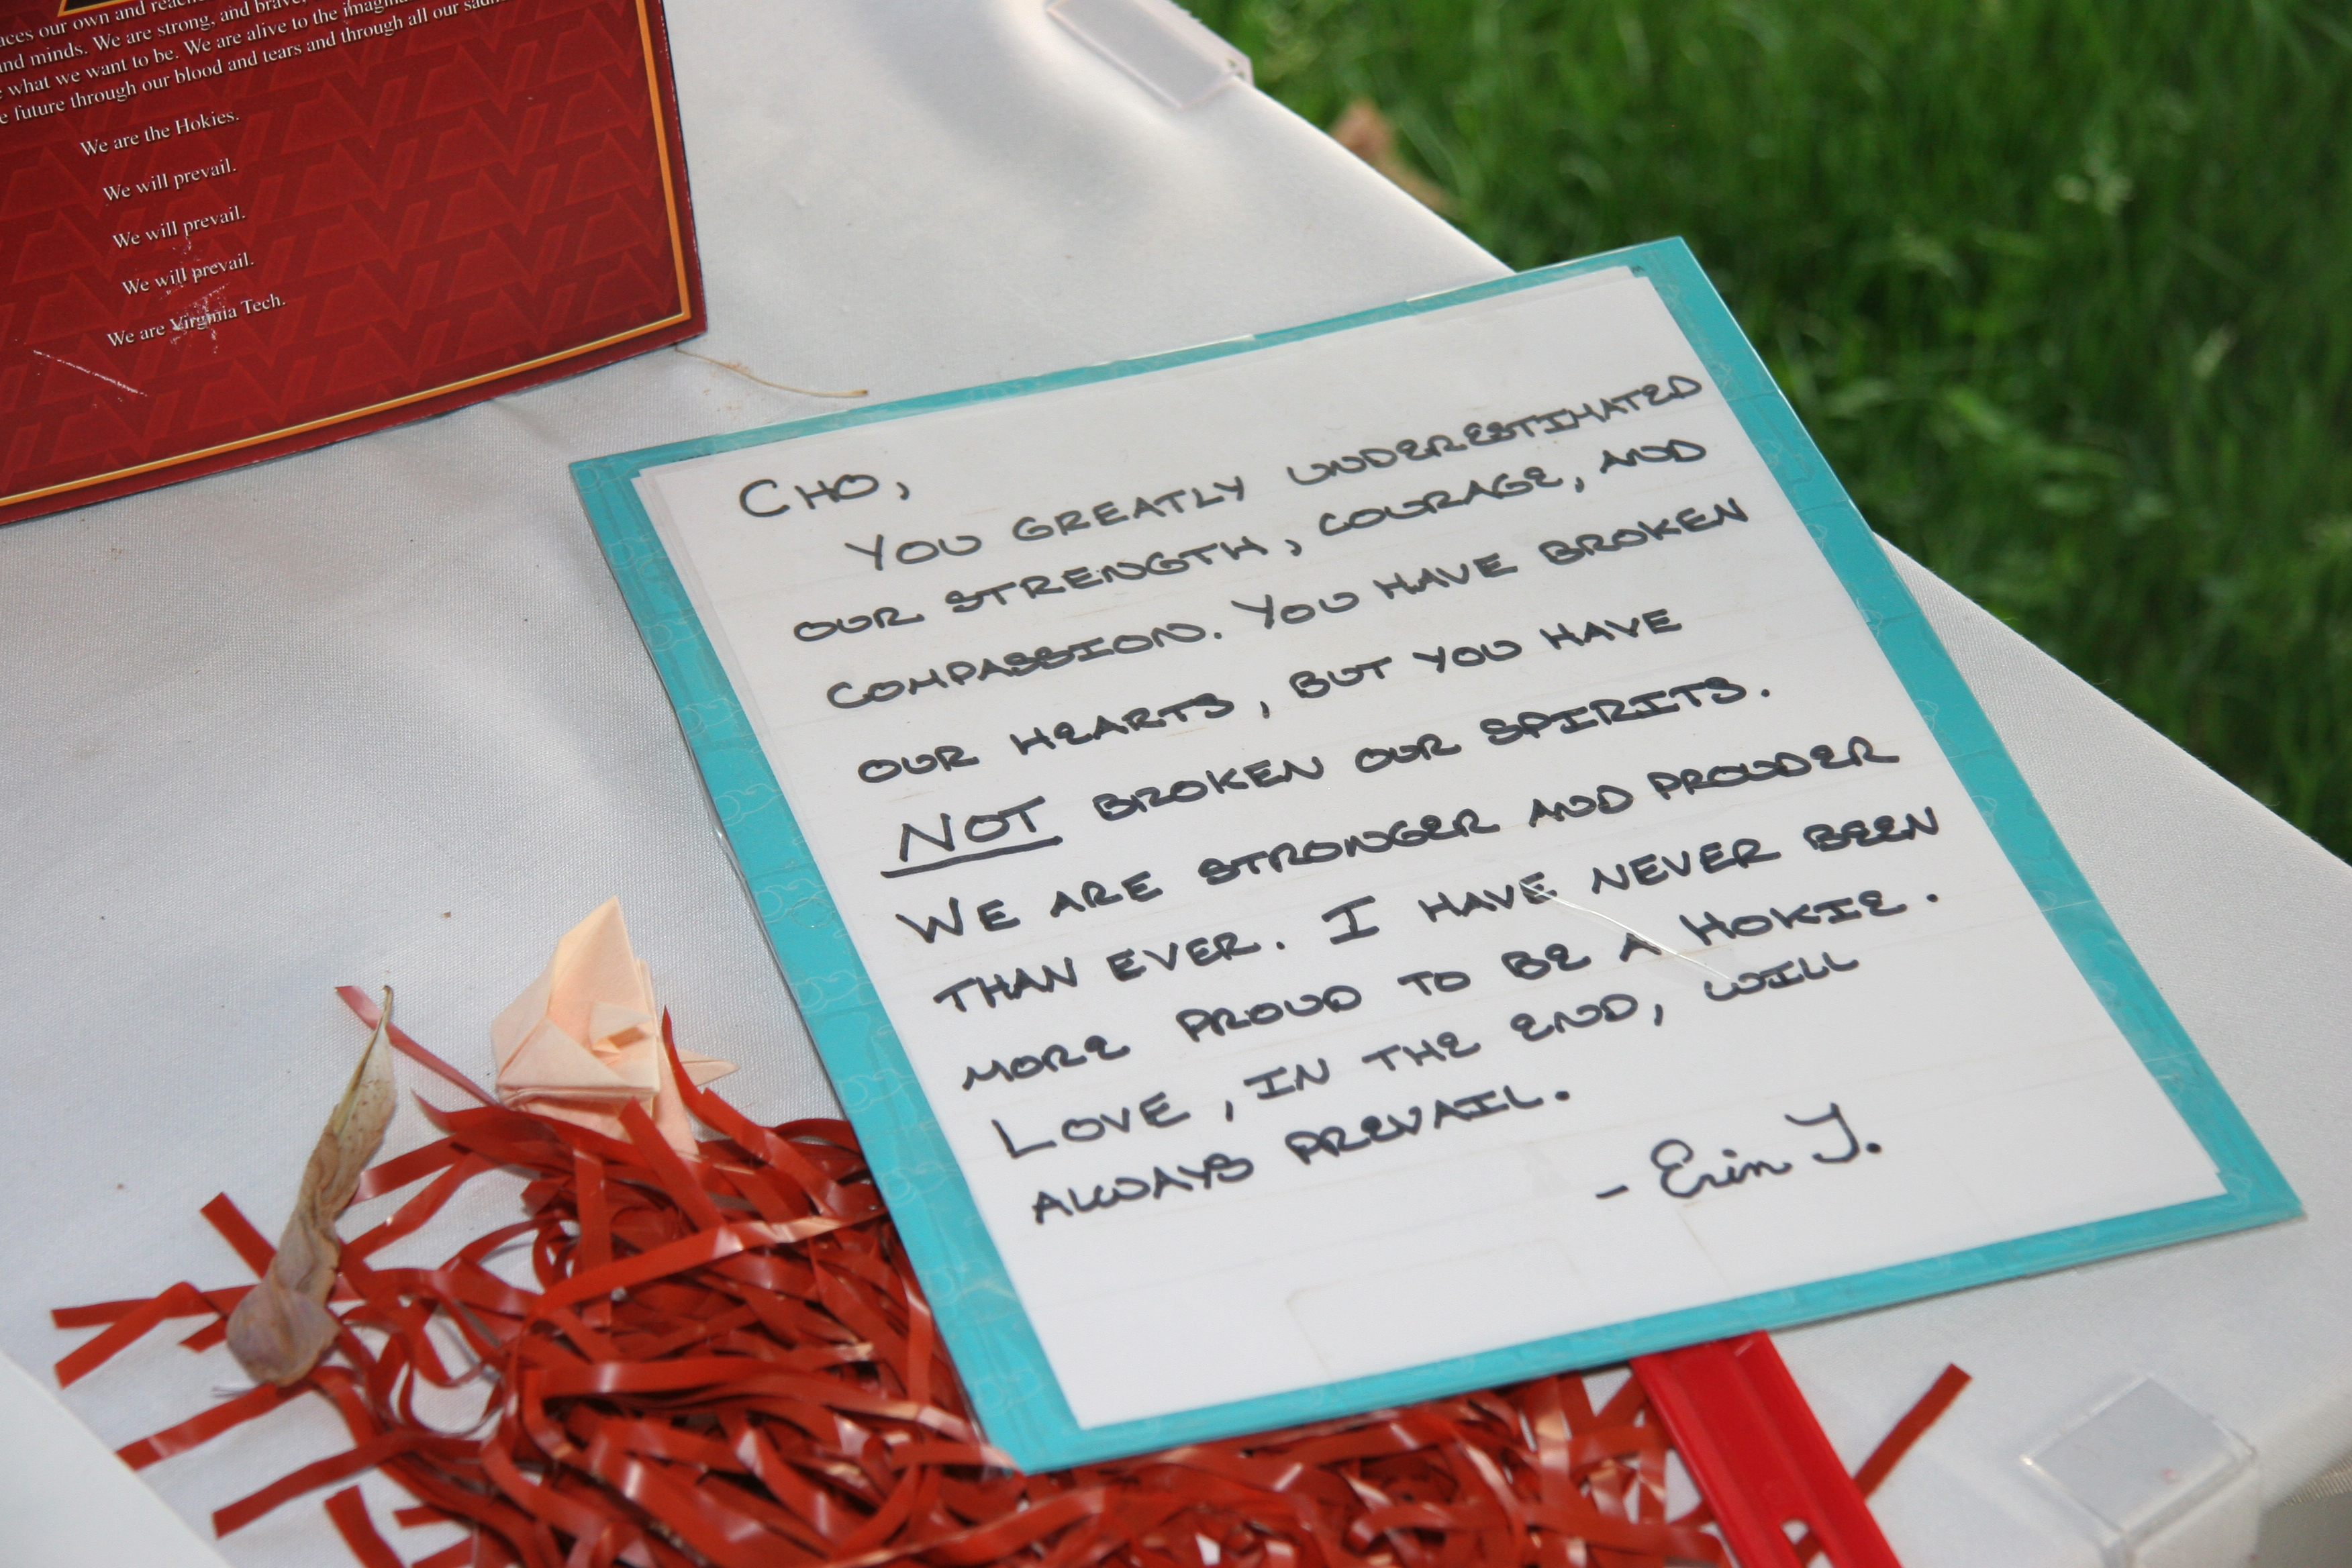 aces our own and reach
and minds. We are strong, and brave,
what we want to be. We are alive to the imagina
e future through our blood and tears and through all our sadn
We are the Hokies.
We will prevail.
We will prevail.
We will prevail.
We are Virginia Tech.
CHO,
YOU GREATLY UNDERESTIMATED
OUR STRENGTH, COURAGE, AND
COMPASSION. YOU HAVE BROKEN
OUR HEARTS, BUT YOU HAVE
NOT BROKEN OUR SPIRITS.
WE ARE STRONGER AND PROUDER
THAN EVER. I HAVE NEVER BEEN
MORE PROUD TO BE A HOKIE.
LOVE, IN THE END, WILL
ALWAYS PREVAIL.
- Erin Y.